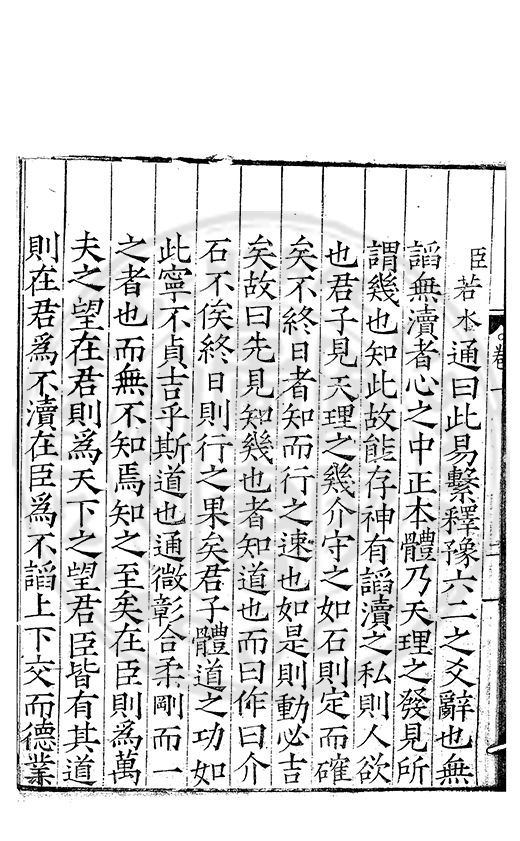 臣若水通曰此易繫釋豫六二之爻辭也無
諂無瀆者心之中正本體乃天理之發見所
謂幾也知此故能存神有諂瀆之私則人欲
也君子見天理之幾介守之如石則定而確
矣不終日者知而行之速也如是則動必吉
矣故曰先見知幾也者知道也而曰作曰介
石不俟終日則行之果矣君子體道之功如
此寧不貞吉乎斯道也通微彰合柔剛而一
之者也而無不知焉知之至矣在臣則為萬
夫之望在君則為天下之望君臣皆有其道
則在君為不瀆在臣為不諂上下交而德業
卷一
二